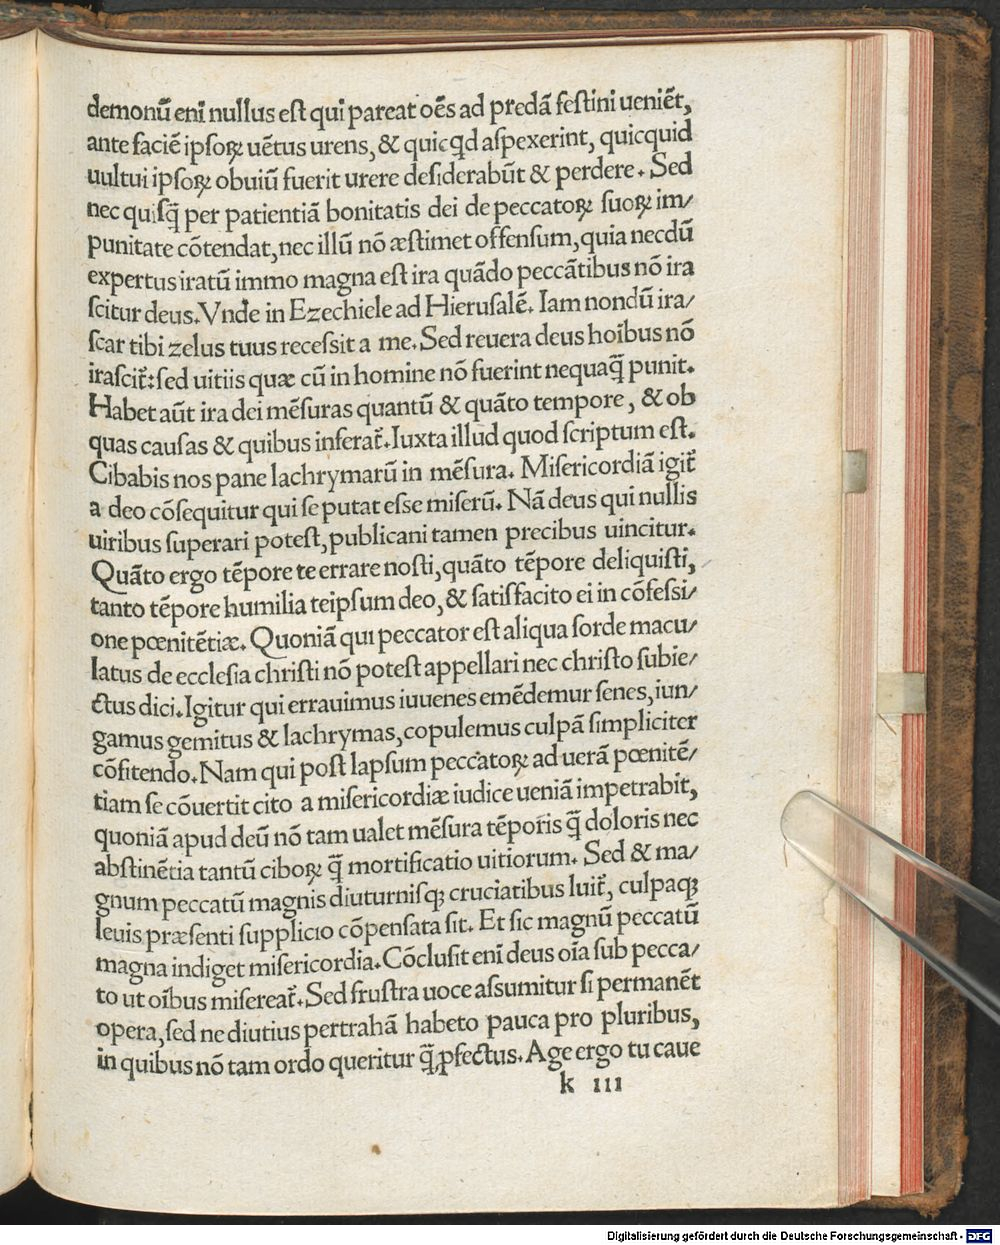 demonū eni nullus est qui pareat oēs ad predā festini ueniēt,
ante faciē ipsoꝝ uētus urens, & quicqd aspexerint, quicquid
uultui ipsoꝝ obuiū fuerit urere desiderabūt & perdere. Sed
nec quisq̄ per patientiā bonitatis dei de peccatoꝝ suoꝝ im/
punitate cōtendat, nec illū nō æstimet offensum, quia necdū
expertus iratū immo magna est ira quādo peccātibus nō ira
scitur deus. Vnde in Ezechiele ad Hierusalē. Iam nondū ira/
scar tibi zelus tuus recessit a me. Sed reuera deus hoībus nō
irascit̄: sed uitiis quæ cū in homine nō fuerint nequaq̄ punit.
Habet aūt ira dei mēsuras quantū & quāto tempore, & ob
quas causas & quibus inferat̄. Iuxta illud quod scriptum est.
Cibabis nos pane lachrymarū in mēsura. Misericordiā igit̄
a deo cōsequitur qui se putat esse miserū. Nā deus qui nullis
uiribus superari potest, publicani tamen precibus uincitur.
Quāto ergo tēpore te errare nosti, quāto tēpore deliquisti,
tanto tēpore humilia teipsum deo, & satisfacito ei in cōfessi/
one pœnitētiæ. Quoniā qui peccator est aliqua sorde macu/
latus de ecclesia christi nō potest appellari nec christo subie/
ctus dici. Igitur qui errauimus iuuenes emēdemur senes, iun/
gamus gemitus & lachrymas, copulemus culpā simpliciter
cōfitendo. Nam qui post lapsum peccatoꝝ ad uerā pœnitē/
tiam se cōuertit cito a misericordiæ iudice ueniā impetrabit,
quoniā apud deū nō tam ualet mēsura tēporis q̄ doloris nec
abstinētia tantū ciboꝝ q̄ mortificatio uitiorum. Sed & ma/
gnum peccatū magnis diuturnisqꝫ cruciatibus luit̄, culpaqꝫ
leuis præsenti supplicio cōpensata sit. Et sic magnū peccatū
magna indiget misericordia. Cōclusit enī deus oīa sub pecca/
to ut oībus misereat̄. Sed frustra uoce assumitur si permanēt
opera, sed ne diutius pertrahā habeto pauca pro pluribus,
in quibus nō tam ordo queritur q̄ ꝓfectus. Age ergo tu caue
k iii
Digitalisierung gefördert durch die Deutsche Forschungsgemeinschaft - DFG